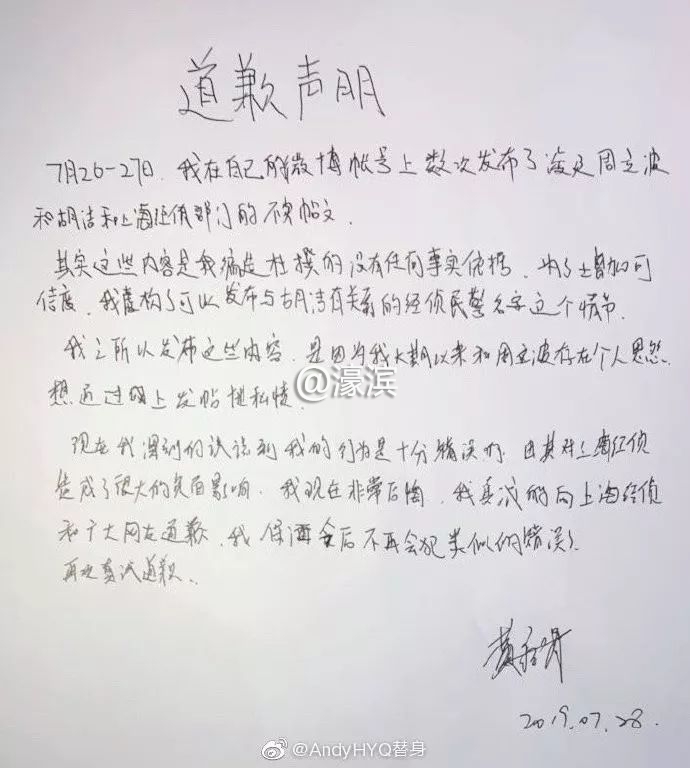 道歉声明
7月26-27日，我在自己的微博帐号上数次发布了涉及周立波
和胡洁和上海经侦部门的不实帖文。
其实这些内容是我编造杜撰的没有任何事实依据，为了增加可
信度，我虚构了可以发布与胡洁有关系的经侦民警名字这个情节。
我之所以发布这些内容，是因为我长期以来和周立波存在个人恩怨，
@濠滨
想通过网上发帖泄私愤。
现在我深刻的认识到我的行为是十分错误的，因其对上海经侦
造成了很大的负面影响，我现在非常后悔，我真诚的向上海经侦
和广大网友道歉，我保证今后不再会犯类似的错误。
再次真诚道歉。
2019.07.28.
@AndyHYQ替身